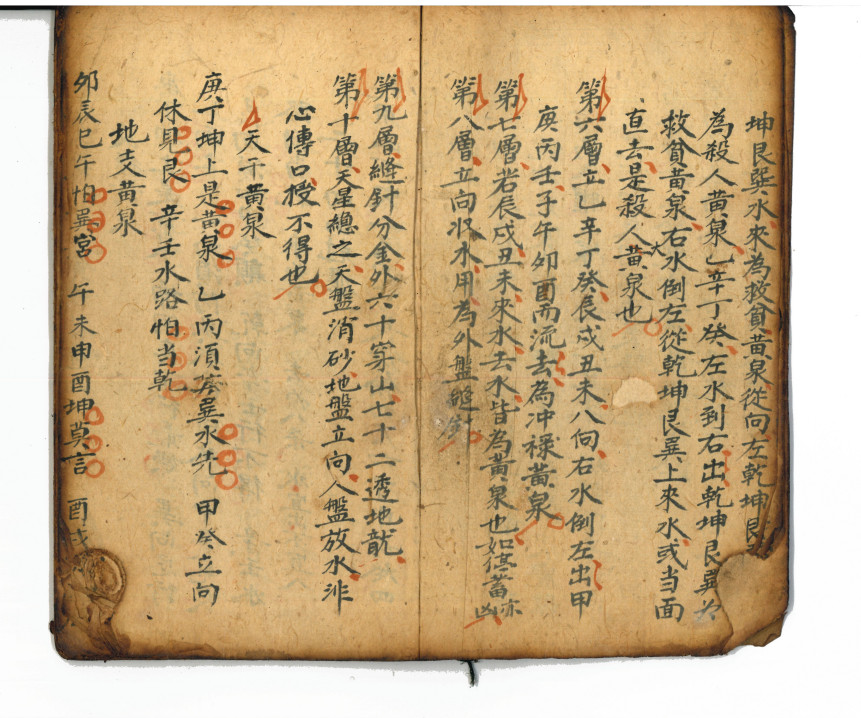 坤艮巽水来為救貧黃泉從向左乾坤艮
為殺人黃泉乙辛丁癸左水到右出乾坤艮巽為
救貧黃泉右水倒左從乾坤艮巽上來水或当面
直去是殺人大黃泉也
第六層立乙辛丁癸辰戍丑未八向右水倒左出甲
庚丙壬子午卯酉而流去為冲禄黃泉
第七層若辰戍丑未來水去水皆為黃泉也如停蓄亦凶
第八層立向收水用為外盤縫針
第九層縫針分金外六十穿山七十二透地龍
第十層天星總之天盤消砂地盤立向人盤放水非
心傳口授不得也
天干黃泉
庚丁坤上是黃泉 乙丙須莾巽水先 甲癸立向
休見艮 辛壬水路怕当乾
地支黃泉
卯辰巳午怕巽宮 午未申酉坤莫言 酉戍